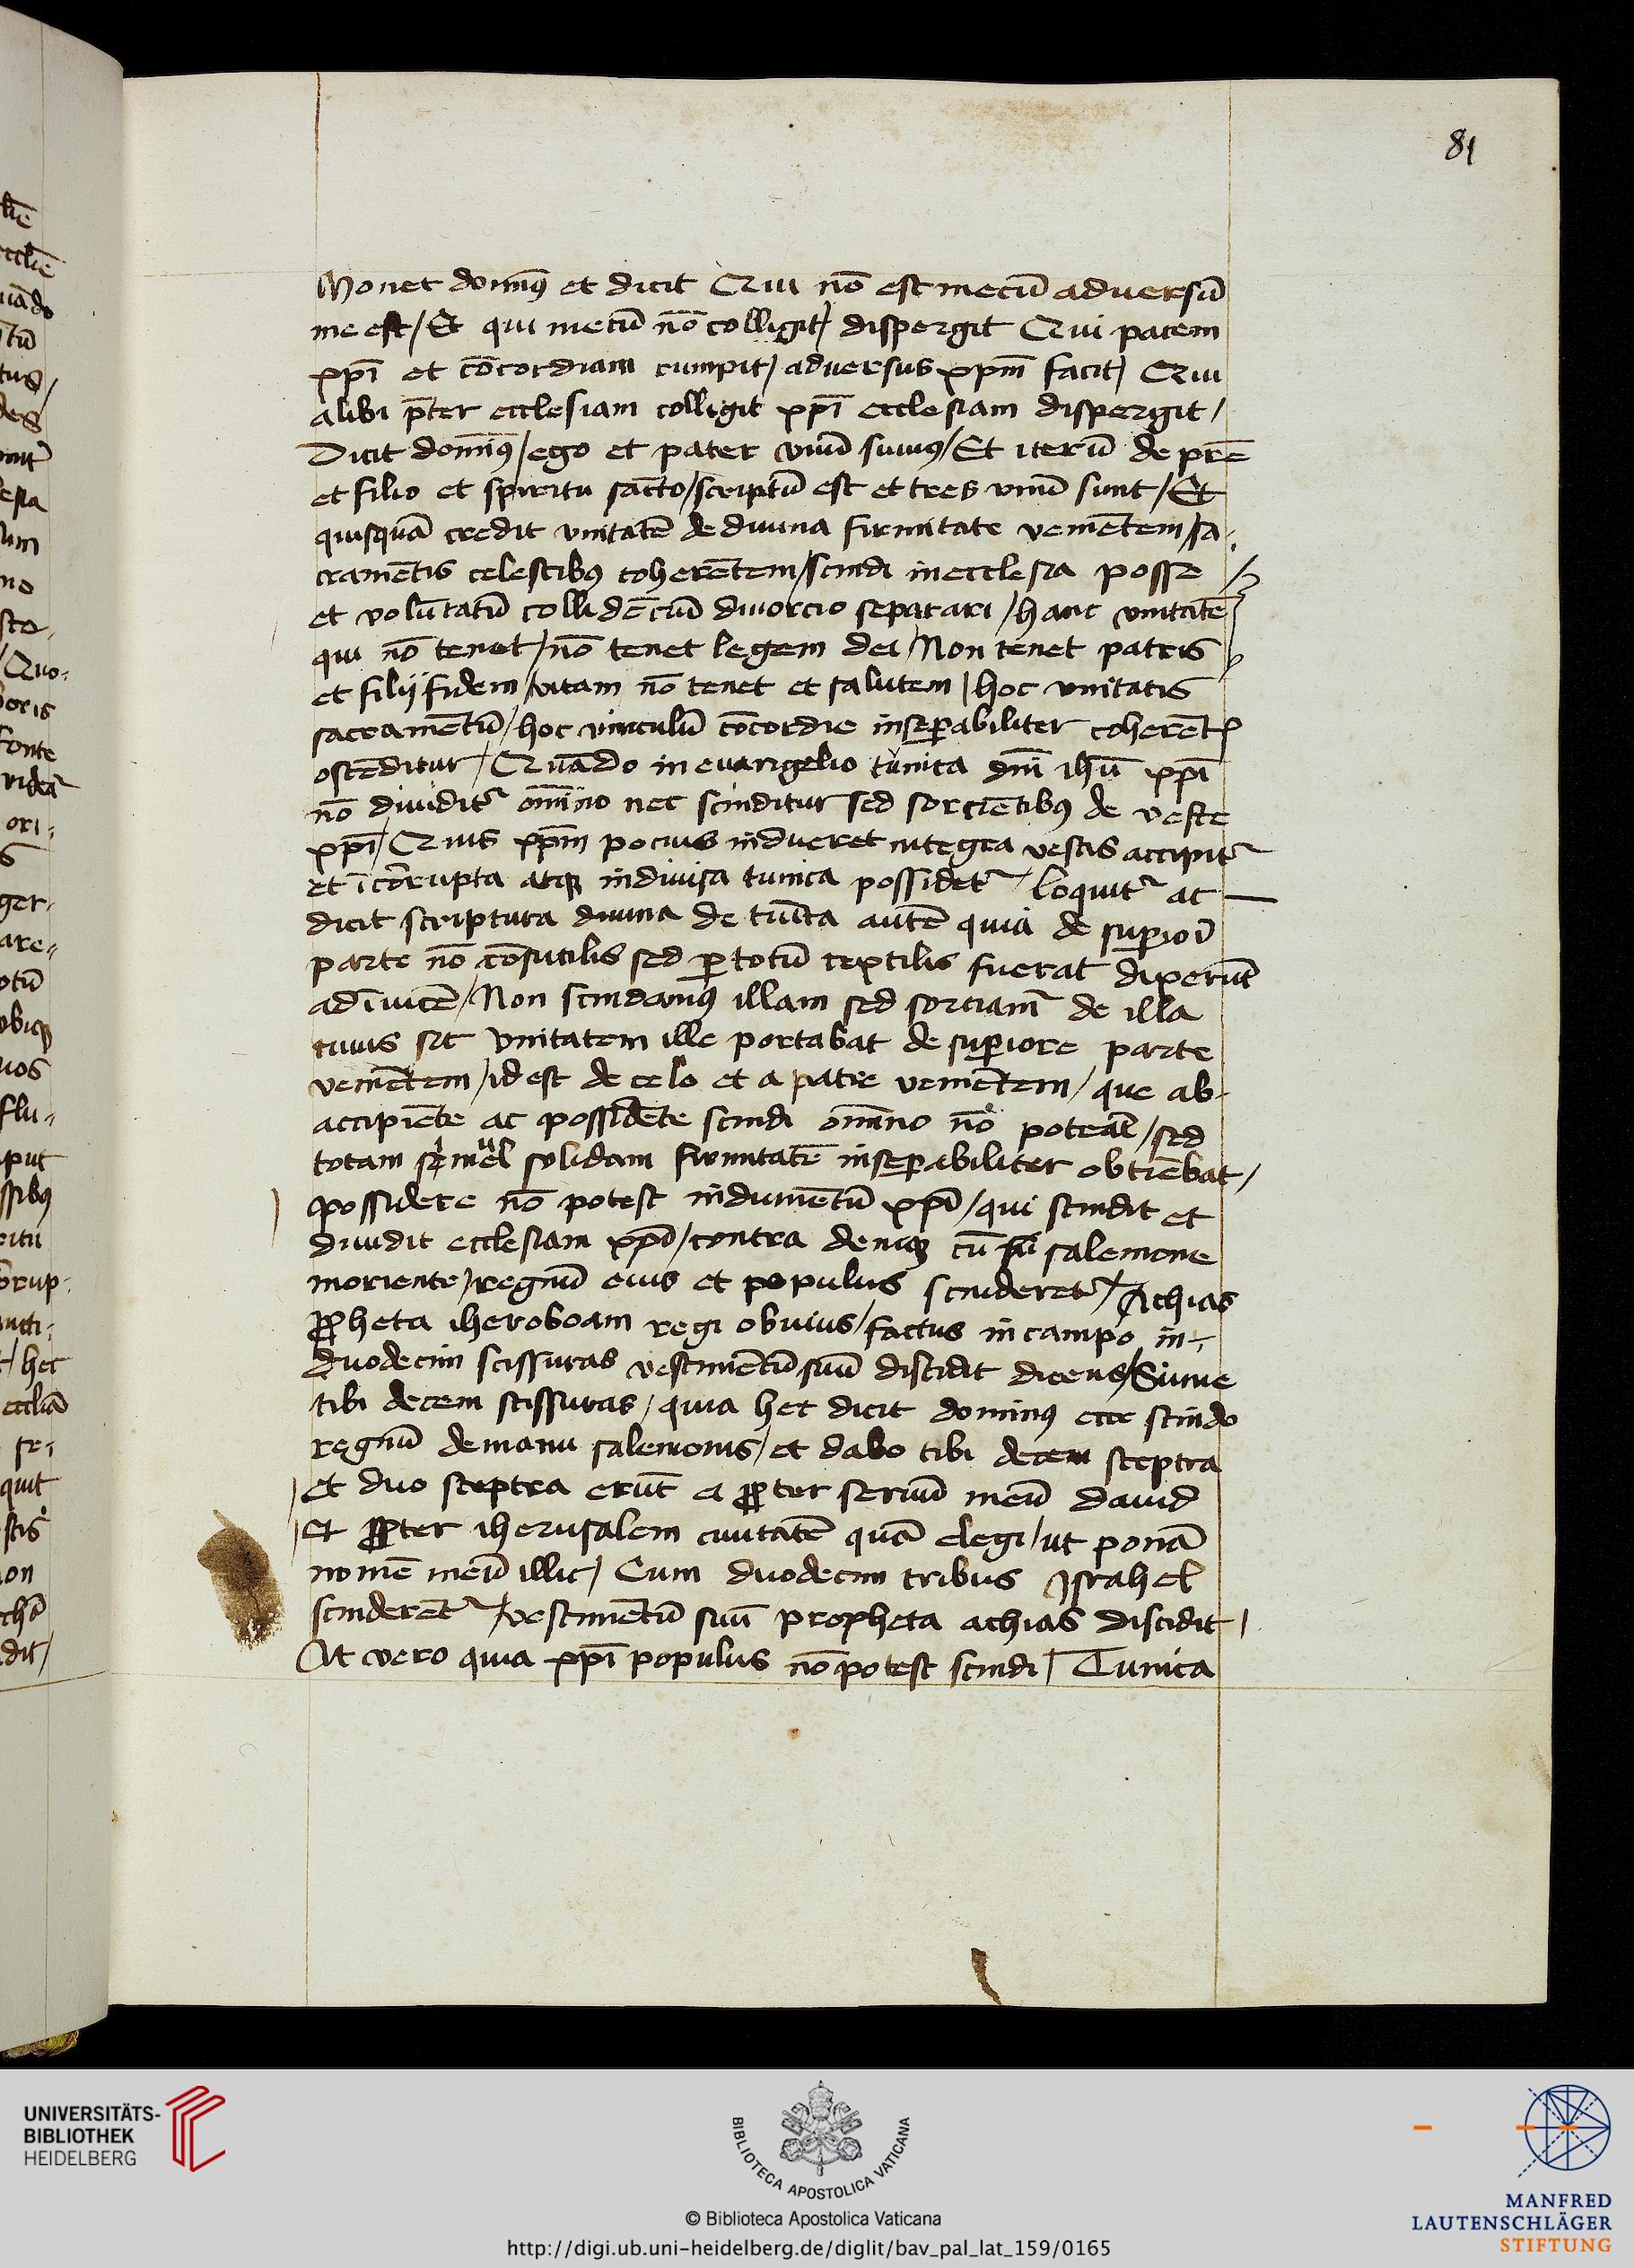 81
Monet domin᷒ et dicit Qui nō est mecū aduersū
me est / Et qui mecū nō colligit / dispergit Qui pacem
xp̄i et cōcordiam rumpit / aduersus xp̄m facit / Qui
alibi p̄ter ecclesiam colligit xp̄i ecclesiam dispergit /
Dicit domin᷒ / ego et pater vnū sum᷒ / Et iterū de pr̄e
et filio et spiritu sācto / scriptū est et tres vnū sunt / Et
quisquā credit vnitatē de diuina firmitate veniētem / sa-
cramētis celestibꝰ coherētem / scindi in ecclesia posse
et volūtatū collidēciū diuorcio separari / hanc vnitatē
qui nō tenet / nō tenet legem dei / Non tenet patris
et filij fidem / vitam nō tenet et salutem / hoc vnitatis
sacramētū / hoc vinculū cōcordie insep̱abiliter coherētꝭ
ostēditur / Quādo in euangelio tunica dn̄i ihū xp̄i
nō diuiditᷣ om̄ino nec scinditur sed sorcientibꝰ de veste
xp̄i / Quis xp̄m pocius indueret integra vestis accipitᷣ
et īcōrupta atqꝫ indiuisa tunica possidetᷣ / loquitᷣ ac
dicit scriptura diuina de tūica autē quia de sup̱iori
parte nō cōsutilis sed p̱ totū textilis fuerat dixerūt
ad īuicē / Non scindam᷒ illam sed sorciamᷣ de illa
cuius sit vnitatem ille portabat de sup̱iore parte
veniētem / id est de celo et a patre venientem / que ab
accipiēte ac possidēte scindi om̄ino nō poterat / sed
totam simul solidam firmitatē insep̱abiliter obtiēbat /
possidere nō potest indumētū xp̄i / qui scindit et
diuidit ecclesiam xp̄i / contra deniqꝫ cū salemone
moriente / regnū eius et populus scinderetᷣ / Achias
ꝓpheta iheroboam regi obuius / factus in campo in-
duodecim scissuras vestimētū suū discidit dicens / Sume
tibi decem scissuras / quia hec dicit domin᷒ ecce scindo
regnū de manu salemonis / et dabo tibi decem sceptra
et duo sceptra erūt ei ꝓpter seruū meū dauid
et ꝓpter iherusalem ciuitatē quā elegi / ut ponā
nomē meū illic / Cum duodecim tribus Israhel
scinderētᷣ / vestimētū suū propheta achias discidit /
At vero quia xp̄i populus nō potest scindi / Tunica
UNIVERSITÄTS-
BIBLIOTHEK
HEIDELBERG
BIBLIOTECA APOSTOLICA VATICANA
© Biblioteca Apostolica Vaticana
http://digi.ub.uni-heidelberg.de/diglit/bav_pal_lat_159/0165
MANFRED
LAUTENSCHLÄGER
STIFTUNG